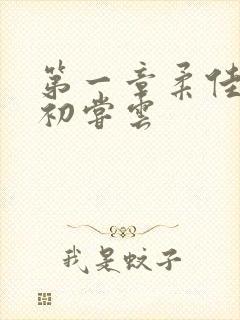 第一章柔佳
初尝云
我是蚊子